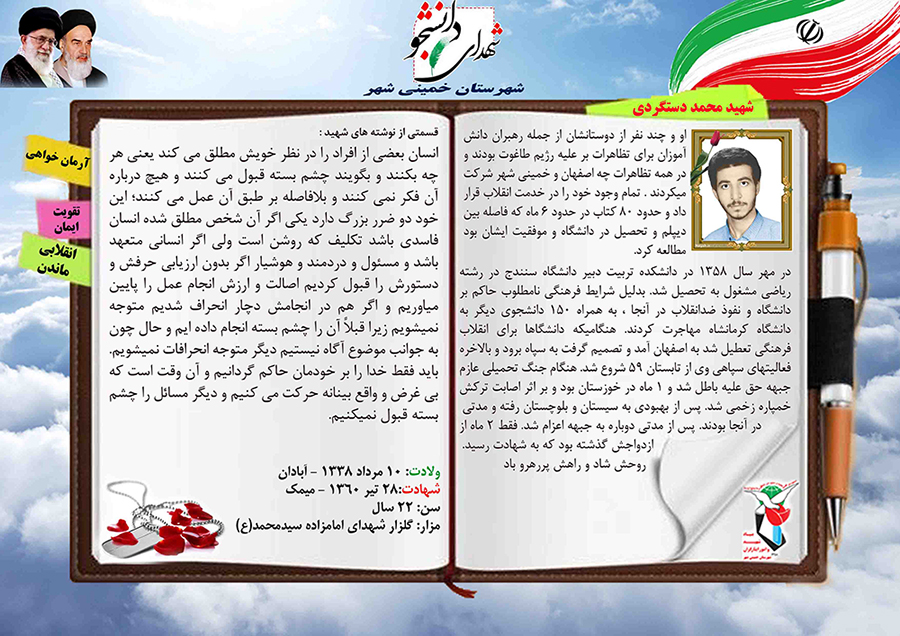 شهدای دانشجو
شهرستان خمینی شهر
شهید محمد دستگردی
او و چند نفر از دوستانشان از جمله رهبران دانش
آموزان برای تظاهرات بر علیه رژیم طاغوت بودند و
در همه تظاهرات چه اصفهان و خمینی شهر شرکت
میکردند . تمام وجود خود را در خدمت انقلاب قرار
داد و حدود ۸۰ کتاب در حدود ۶ ماه که فاصله بین
دیپلم و تحصیل در دانشگاه و موفقیت ایشان بود
مطالعه کرد.
در مهر سال ۱۳۵۸ در دانشکده تربیت دبیر دانشگاه سنندج در رشته
ریاضی مشغول به تحصیل شد. بدلیل شرایط فرهنگی نامطلوب حاکم بر
دانشگاه و نفوذ ضدانقلاب در آنجا ، به همراه ۱۵۰ دانشجوی دیگر به
دانشگاه کرمانشاه مهاجرت کردند. هنگامیکه دانشگاها برای انقلاب
فرهنگی تعطیل شد به اصفهان آمد و تصمیم گرفت به سپاه برود و بالاخره
فعالیتهای سپاهی وی از تابستان ۵۹ شروع شد. هنگام جنگ تحمیلی عازم
جبهه حق علیه باطل شد و ۱ ماه در خوزستان بود و بر اثر اصابت ترکش
خمپاره زخمی شد. پس از بهبودی به سیستان و بلوچستان رفته و مدتی
در آنجا بودند. پس از مدتی دوباره به جبهه اعزام شد. فقط ۲ ماه از
ازدواجش گذشته بود که به شهادت رسید.
روحش شاد و راهش پررهرو باد
قسمتی از نوشته های شهید :
انسان بعضی از افراد را در نظر خویش مطلق می کند یعنی هر
چه بکنند و بگویند چشم بسته قبول می کنند و هیچ درباره
آن فکر نمی کنند و بلافاصله بر طبق آن عمل می کنند؛ این
خود دو ضرر بزرگ دارد یکی اگر آن شخص مطلق شده انسان
فاسدی باشد تکلیف که روشن است ولی اگر انسانی متعهد
باشد و مسئول و دردمند و هوشیار اگر بدون ارزیابی حرفش و
دستورش را قبول کردیم اصالت و ارزش انجام عمل را پایین
میاوریم و اگر هم در انجامش دچار انحراف شدیم متوجه
نمیشویم زیرا قبلاً آن را چشم بسته انجام داده ایم و حال چون
به جوانب موضوع آگاه نیستیم دیگر متوجه انحرافات نمیشویم.
باید فقط خدا را بر خودمان حاکم گردانیم و آن وقت است که
بی غرض و واقع بینانه حرکت می کنیم و دیگر مسائل را چشم
بسته قبول نمیکنیم.
ولادت: ۱۰ مرداد ۱۳۳۸ - آبادان
شهادت:۲۸ تیر ۱۳۶۰ - میمک
سن: ۲۲ سال
مزار: گلزار شهدای امامزاده سیدمحمد(ع)
آرمان خواهی
تقویت
ایمان
انقلابی
ماندن